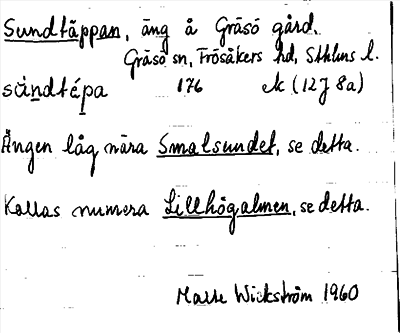 Sundtäppan, äng å Gräsö gård.
Gräsö sn, Frösåkers hd, Sthlms l.
sùndtépa 176 ek (12J 8a)
Ängen låg nära Smalsundet, se detta.
Kallas numera Lillhögalmen, se detta.
Wickström 1960